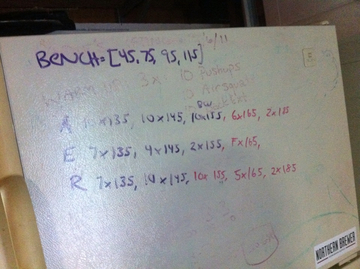 BENCH=[45,75,95,115]
3x 10 Pushups
Air squat
BW
A 10x135, 10x145, 10x155, 6x165, 2x185
E 7x135, 4x145, 2x155, Fx165,
R 7x135, 10x145, 10x155, 5x165, 2x185
NORTHERN BREWER